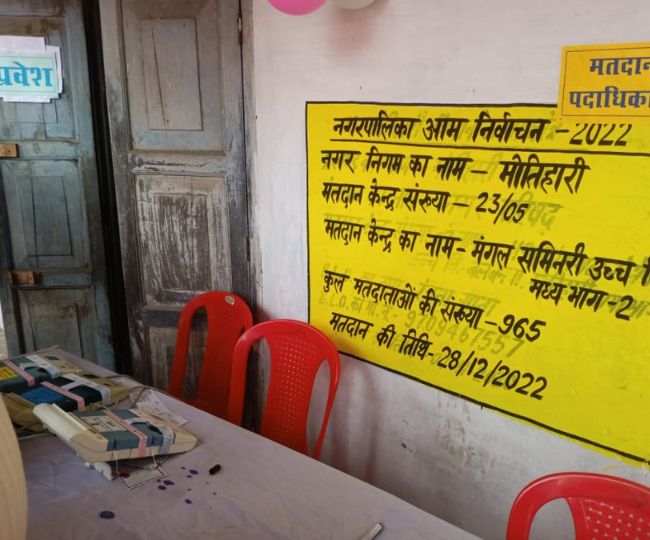 प्रवेश
मतदान
पदाधिका
नगरपालिका आम निर्वाचन - 2022
नगर निगम का नाम - मोतिहारी
मतदान केन्द्र संख्या - 23/05
मतदान केन्द्र का नाम - मंगल समिनरी उच्च
मध्य भाग - 2
कुल मतदाताओं की संख्या - 965
मतदान की तिथि - 28/12/2022